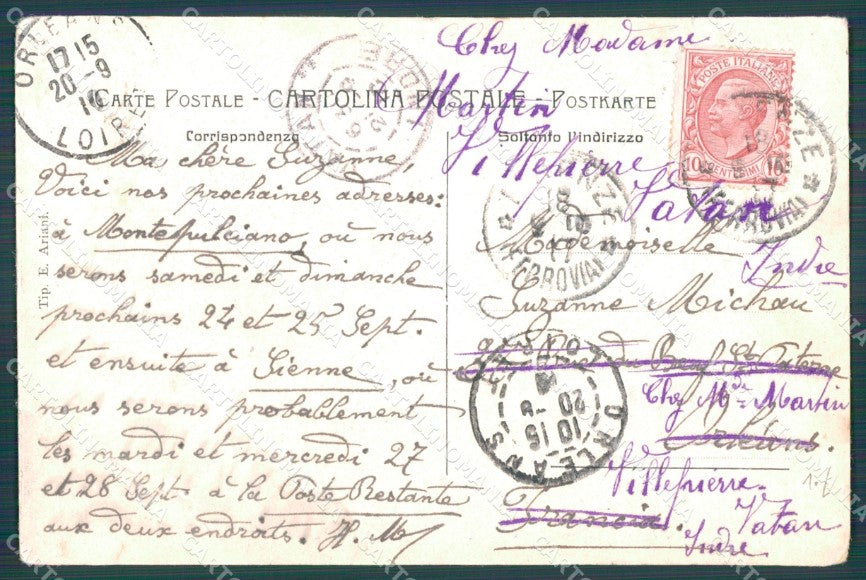 CARTE POSTALE - CARTOLINA POSTALE - POSTKARTE
Corrispondenza
Soltanto l'indirizzo
Ma chère Suzanne,
Voici nos prochaines adresses:
à Montepulciano, où nous
serons samedi et dimanche
prochains 24 et 25 Sept.
et ensuite à Sienne, où
nous serons probablement
les mardi et mercredi 27
et 28 Sept à la Poste Restante
aux deux endroits. H. M
Tip. E. Ariani.
Chez Madame
Martin
Villepierre
Vatan
Indre
Mademoiselle
Suzanne Michau
du Bœuf St Paterne
Chez Mde Martin
Orléans.
Villepierre
Francia.
Vatan
Indre
POSTE ITALIANE
10 CENTESIMI 10
ORLEANS
17 15
20 - 9
10
LOIRET
FIRENZE
FERROVIA
FERROVIA
ORLEANS
10 15
20 - 9
LOIRET
CARTOLINOMANIA